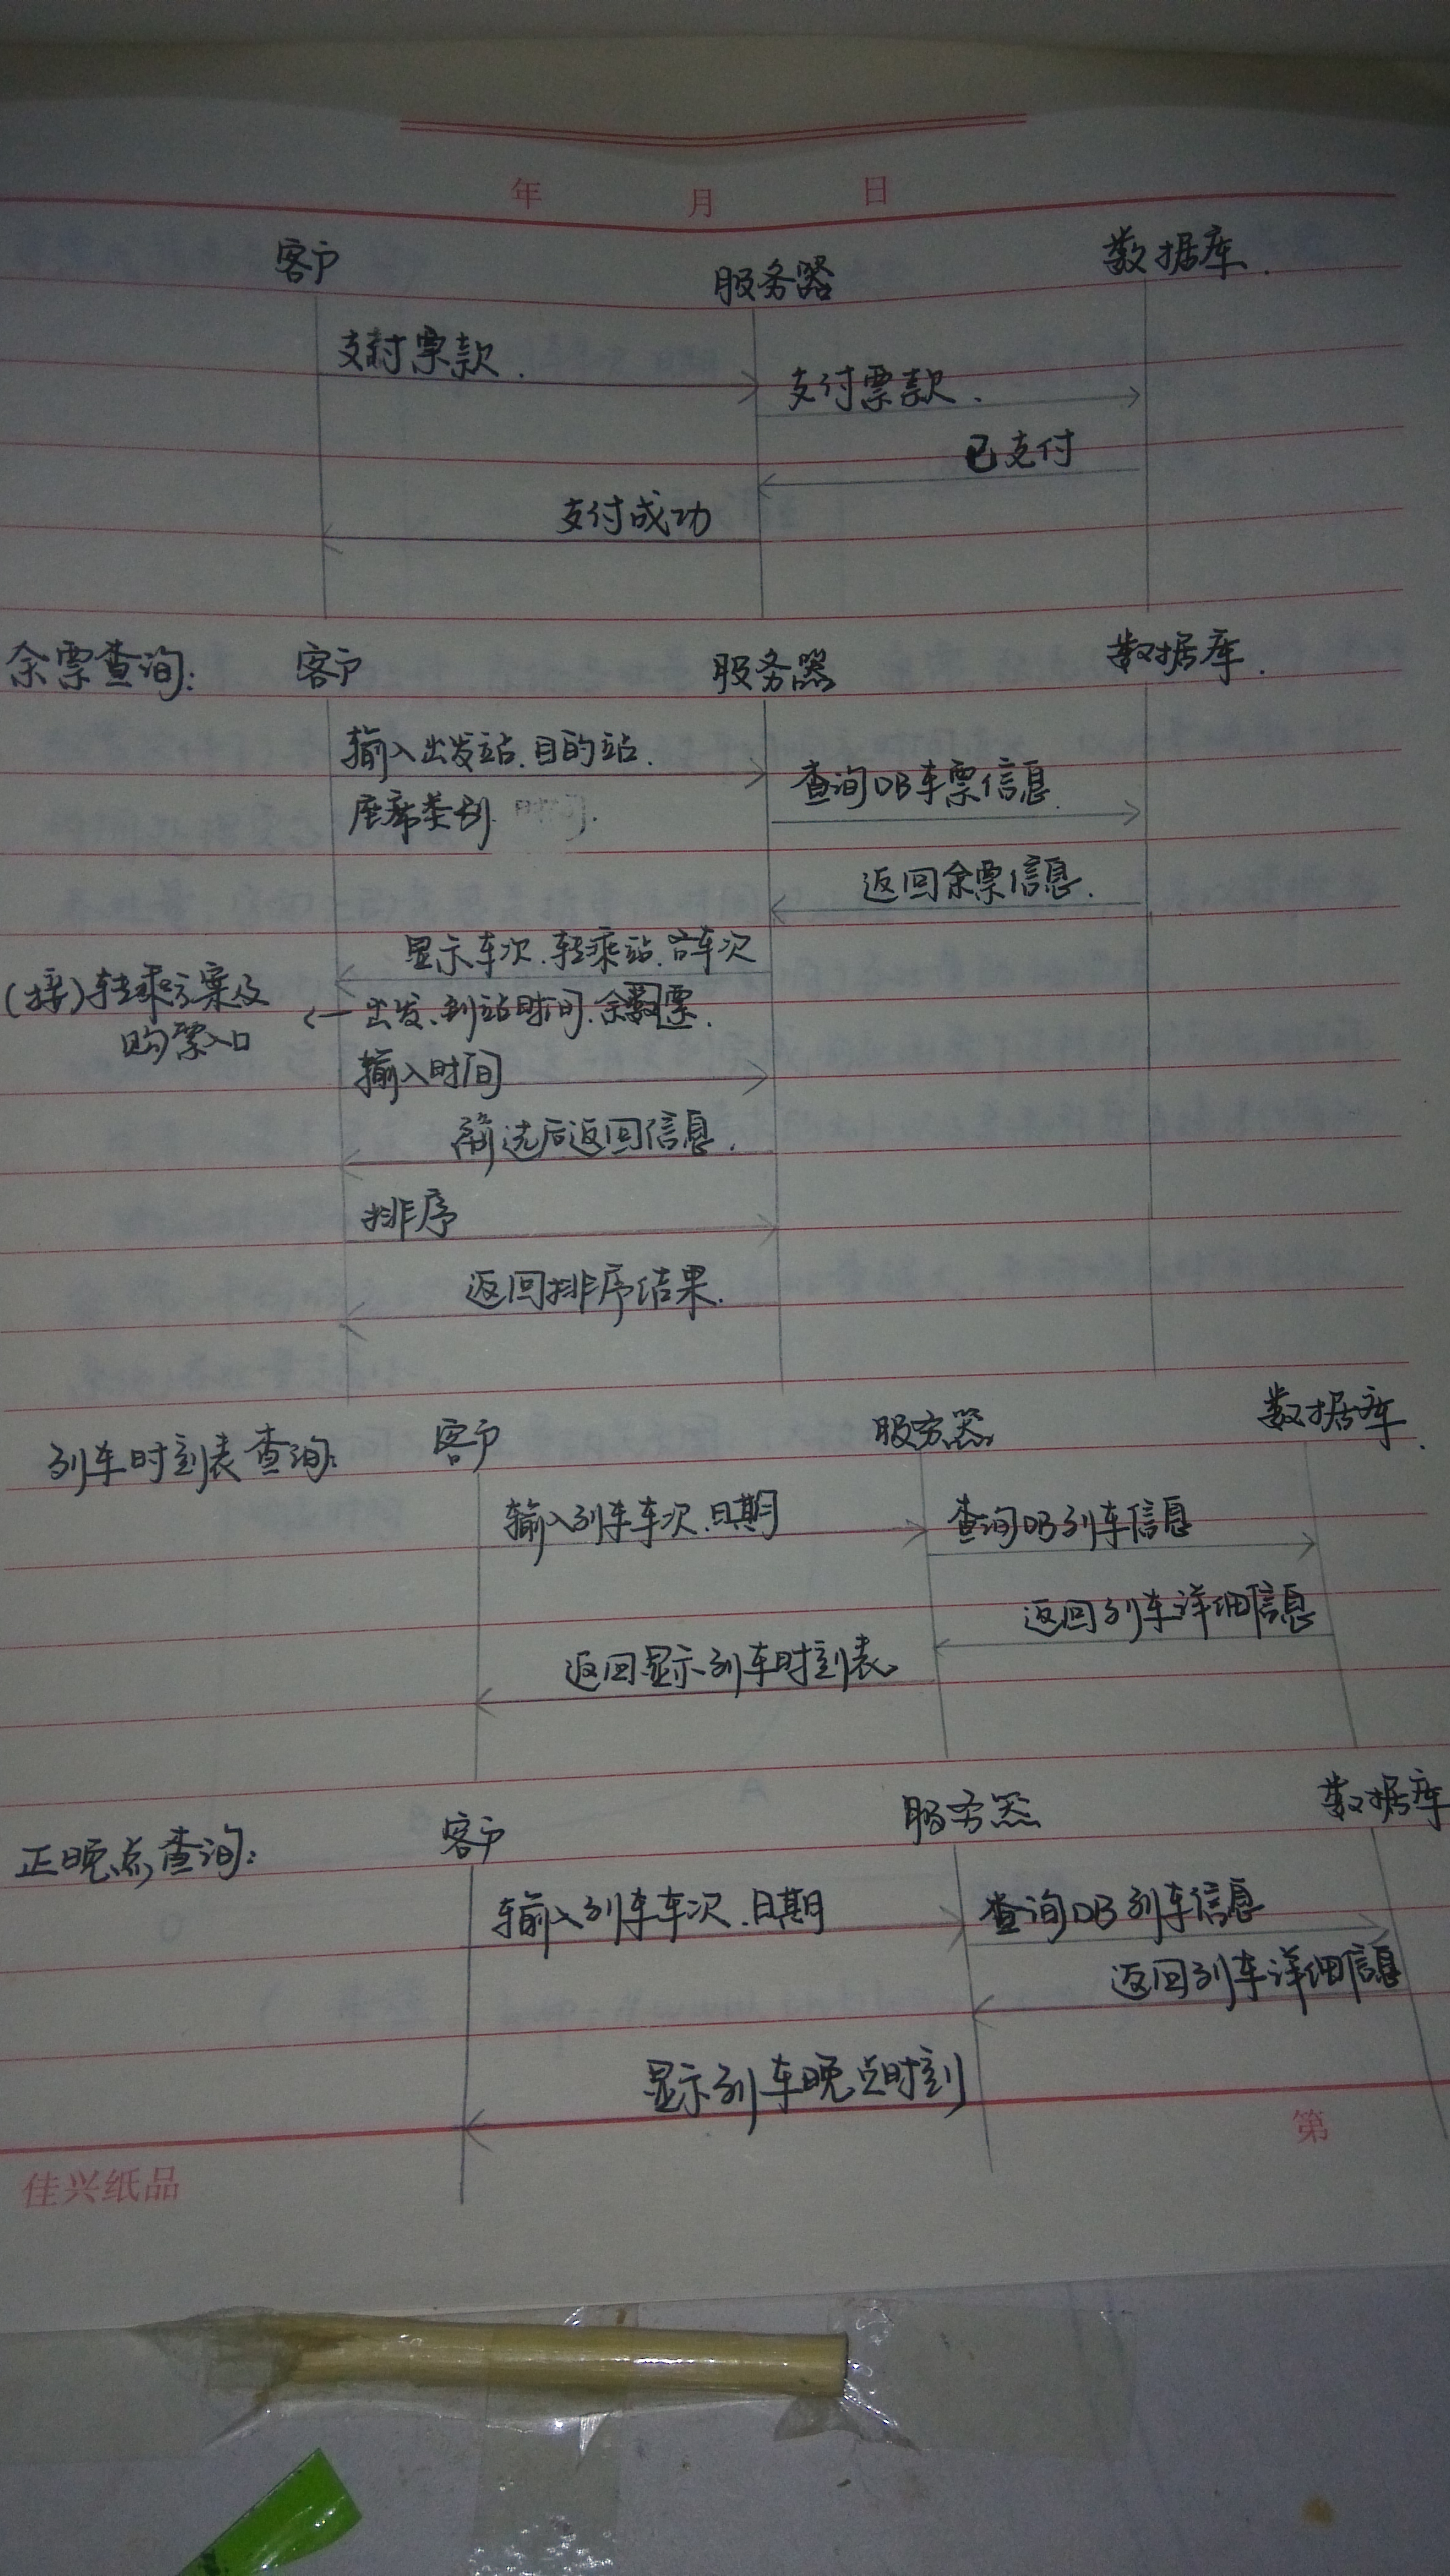 年 月 日
客户 服务器 数据库.
支付票款.
支付票款.
已支付
支付成功
余票查询: 客户 服务器 数据库.
输入出发站.目的站.
座席类别. 时间.
查询DB车票信息.
返回余票信息.
显示车次.转乘站.各车次
出发、到站时间.余票.
(接)转乘方案及
购票入口
输入时间
筛选后返回信息.
排序
返回排序结果.
列车时刻表查询: 客户 服务器 数据库.
输入列车车次.日期
查询DB列车信息
返回列车详细信息
返回显示列车时刻表.
正晚点查询: 客户 服务器 数据库
输入列车车次.日期
查询DB列车信息
返回列车详细信息
显示列车晚点时刻
第
佳兴纸品